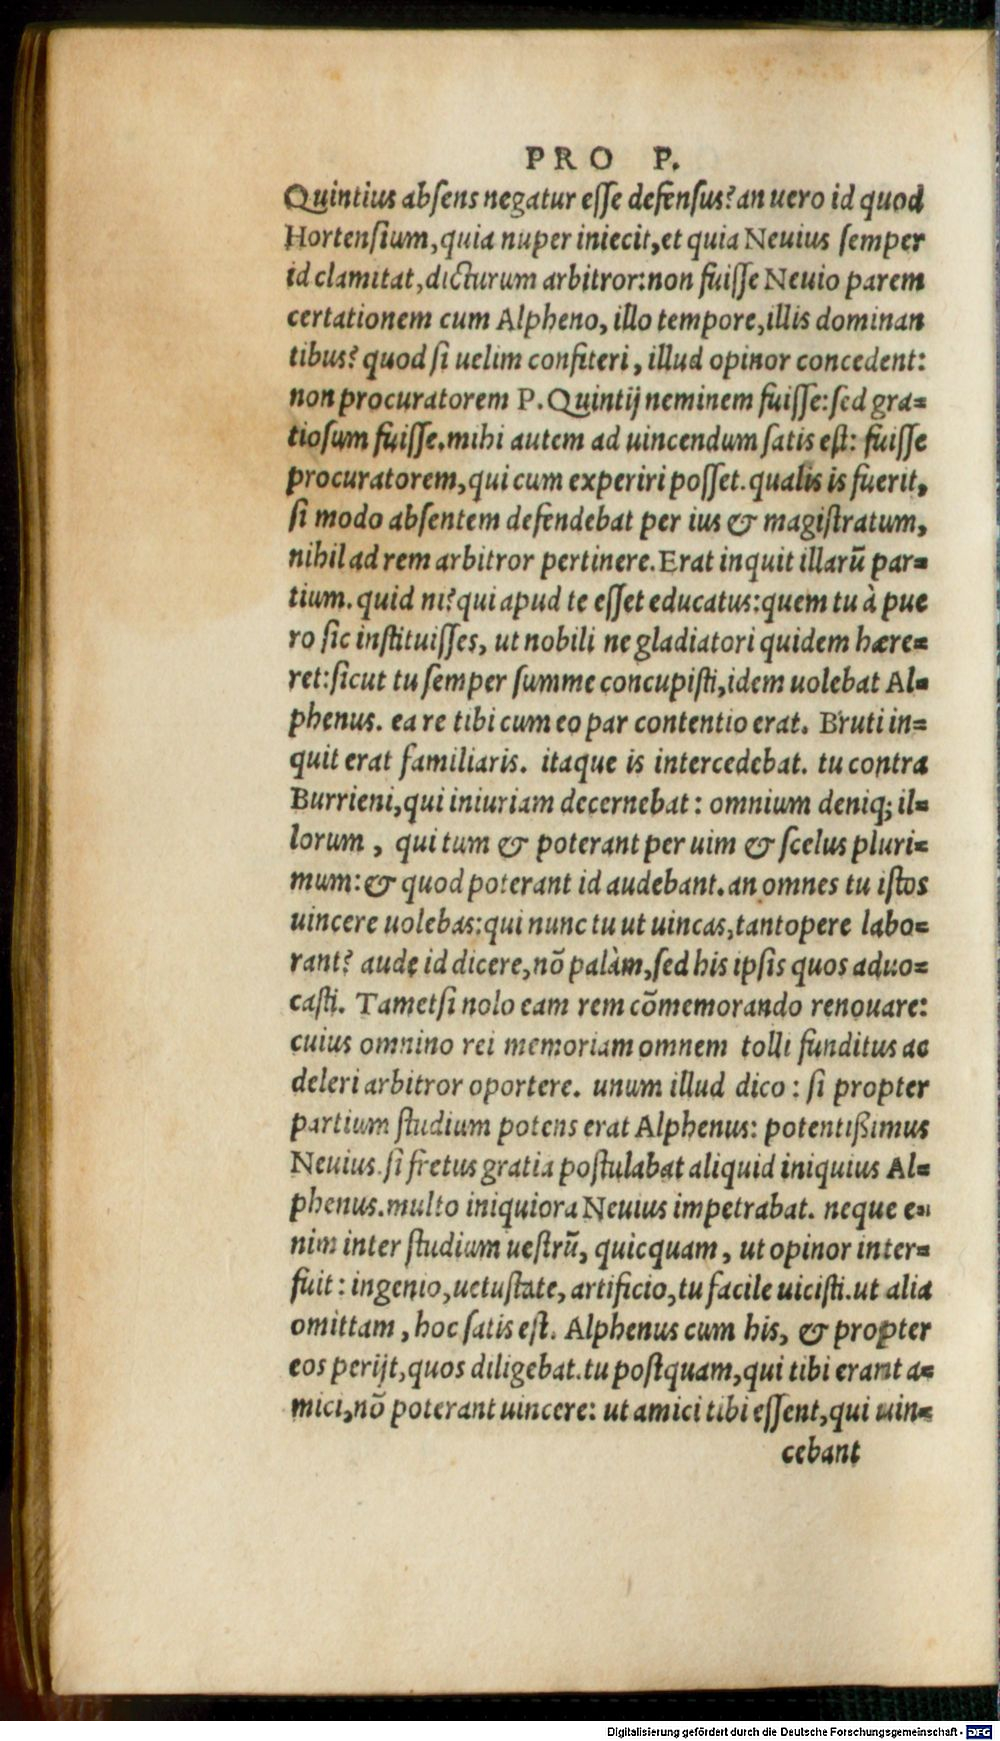 PRO P.
Quintius absens negatur esse defensus? an uero id quod
Hortensium, quia nuper iniecit, et quia Neuius semper
id clamitat, dicturum arbitror: non fuisse Neuio parem
certationem cum Alpheno, illo tempore, illis dominan
tibus? quod si uelim confiteri, illud opinor concedent:
non procuratorem P. Quintij neminem fuisse: sed gra=
tiosum fuisse. mihi autem ad uincendum satis est: fuisse
procuratorem, qui cum experiri posset. qualis is fuerit,
si modo absentem defendebat per ius & magistratum,
nihil ad rem arbitror pertinere. Erat inquit illarũ par=
tium. quid ni? qui apud te esset educatus: quem tu à pue
ro sic instituisses, ut nobili ne gladiatori quidem hære=
ret: sicut tu semper summe concupisti, idem uolebat Al=
phenus. ea re tibi cum eo par contentio erat. Bruti in=
quit erat familiaris. itaque is intercedebat. tu contra
Burrieni, qui iniuriam decernebat: omnium deniq; il=
lorum, qui tum & poterant per uim & scelus pluri=
mum: & quod poterant id audebant. an omnes tu istos
uincere uolebas: qui nunc tu ut uincas, tantopere labo=
rant? aude id dicere, nõ palàm, sed his ipsis quos aduo=
casti. Tametsi nolo eam rem cõmemorando renouare:
cuius omnino rei memoriam omnem tolli funditus ac
deleri arbitror oportere. unum illud dico: si propter
partium studium potens erat Alphenus: potentißimus
Neuius. si fretus gratia postulabat aliquid iniquius Al=
phenus. multo iniquiora Neuius impetrabat. neque e=
nim inter studium uestrũ, quicquam, ut opinor inter=
fuit: ingenio, uetustate, artificio, tu facile uicisti. ut alia
omittam, hoc satis est. Alphenus cum his, & propter
eos perijt, quos diligebat. tu postquam, qui tibi erant a=
mici, nõ poterant uincere: ut amici tibi essent, qui uin=
cebant
Digitalisierung gefördert durch die Deutsche Forschungsgemeinschaft - DFG